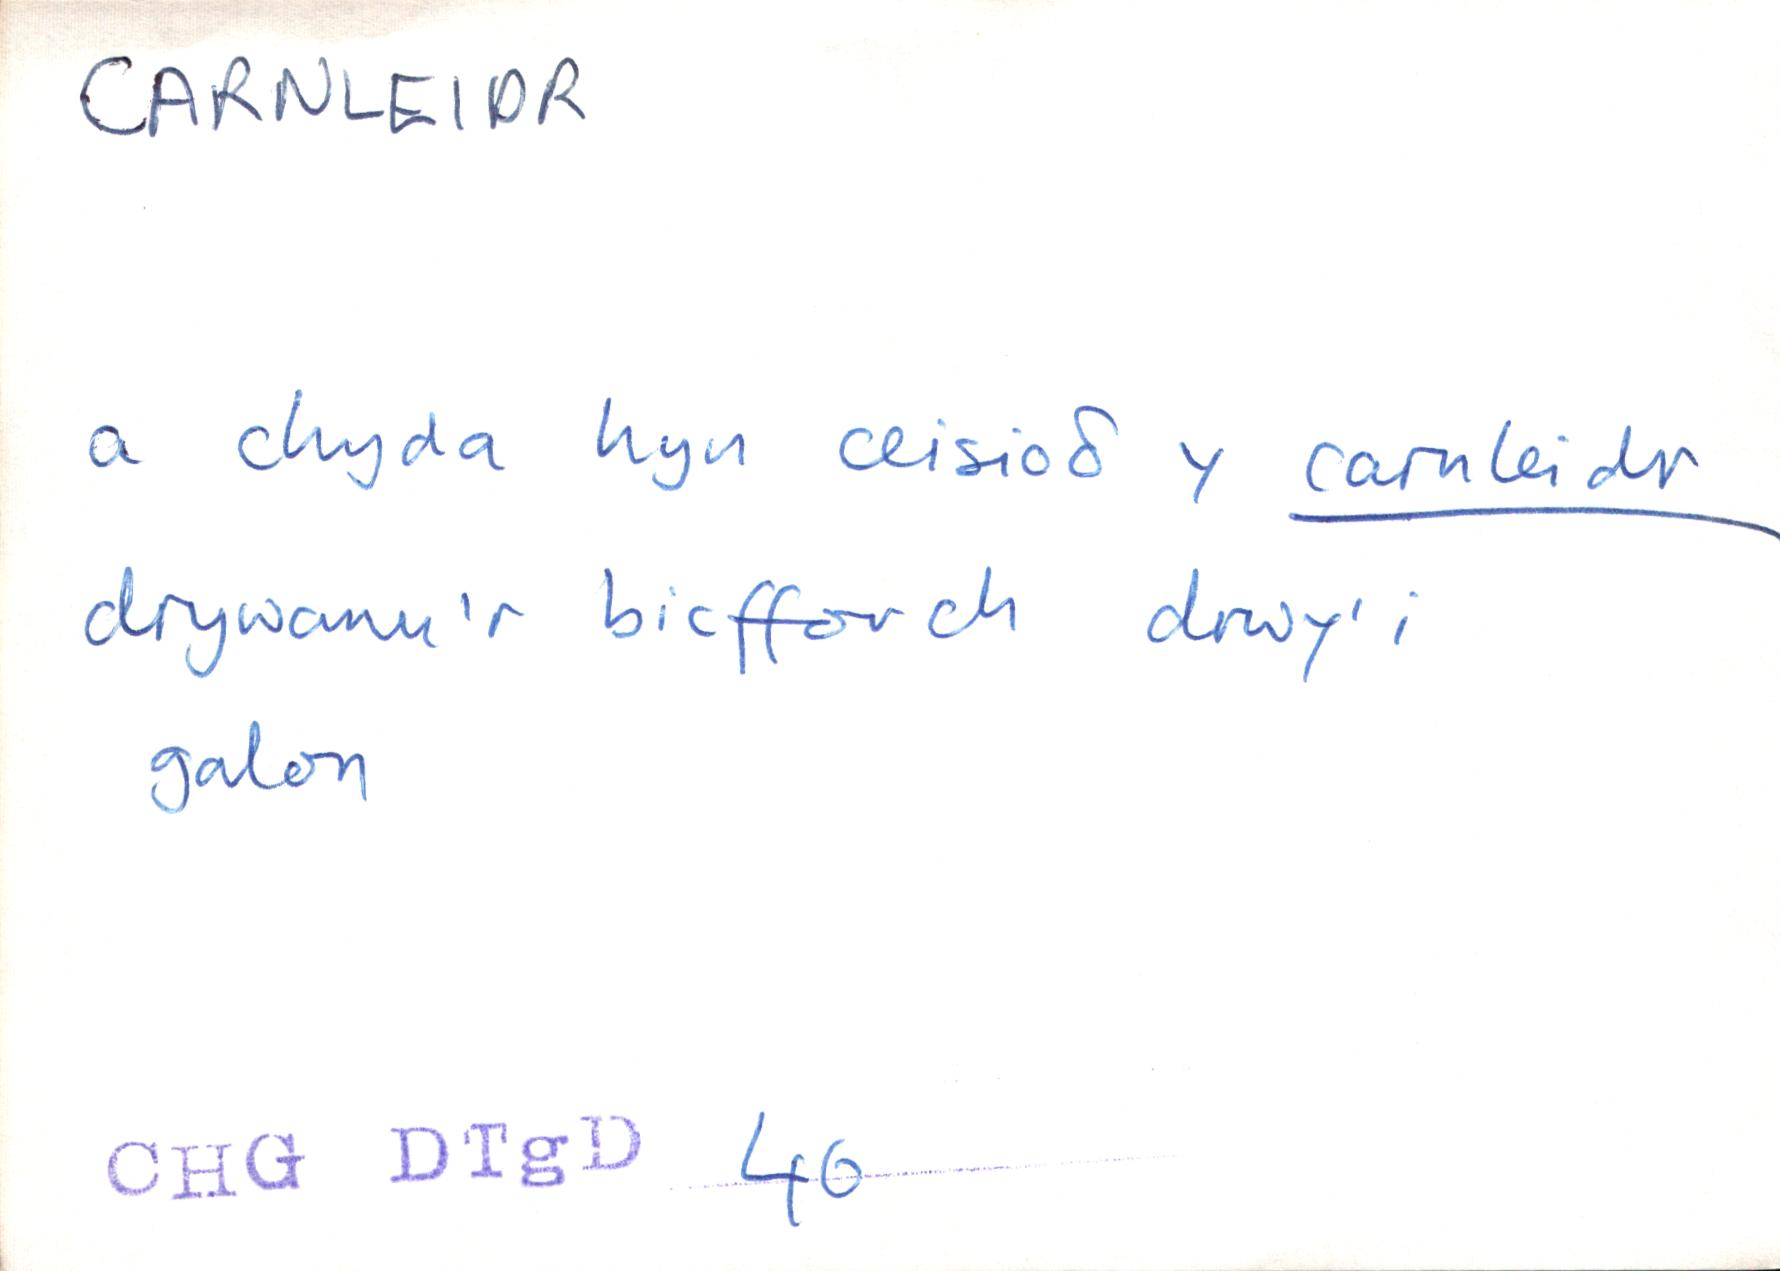 CARNLEIDR
a chyda hyn ceisioδ y carnleidr
drywanu'r bicfforch drwy'i
galon
CHG DTgD 46